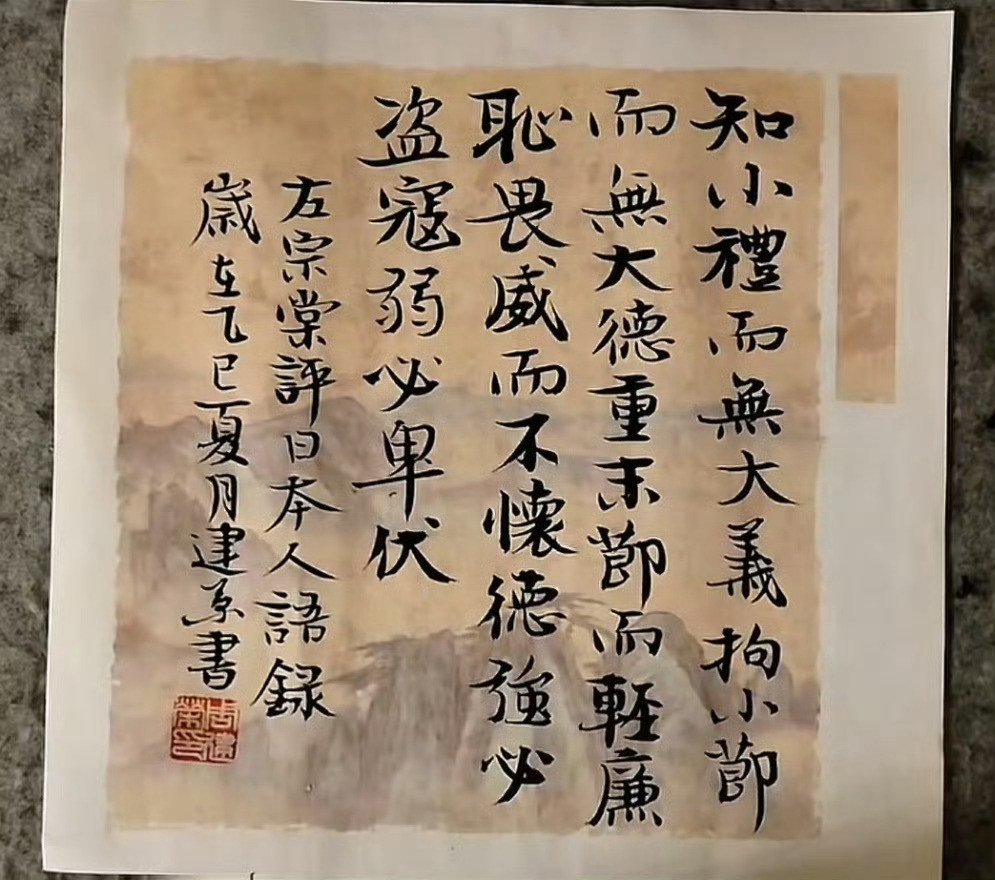 知小禮而無大義拘小節
而無大德重末節而輕廉
恥畏威而不懷德強必
盗寇弱必卑伏
左宗棠評日本人語録
歲在乙巳夏月建榮書